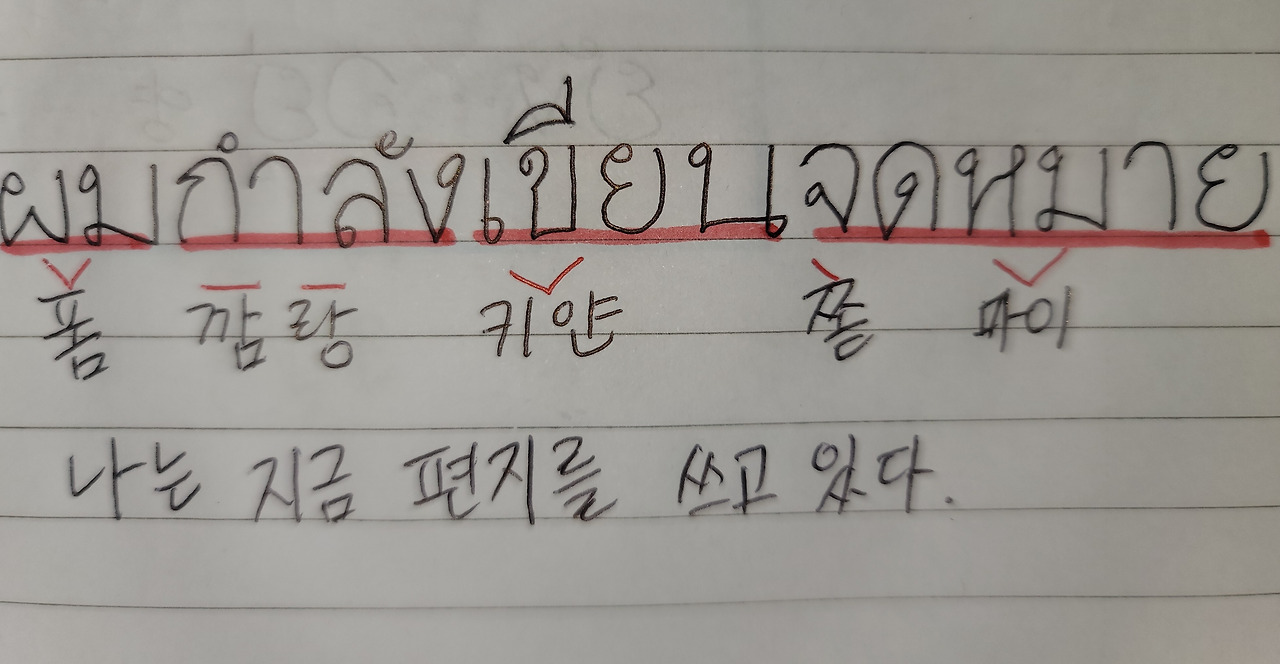 ผมกำลังเขียนจดหมาย
폼 깜 랑 키얀 쫃 마이
나는 지금 편지를 쓰고 있다.